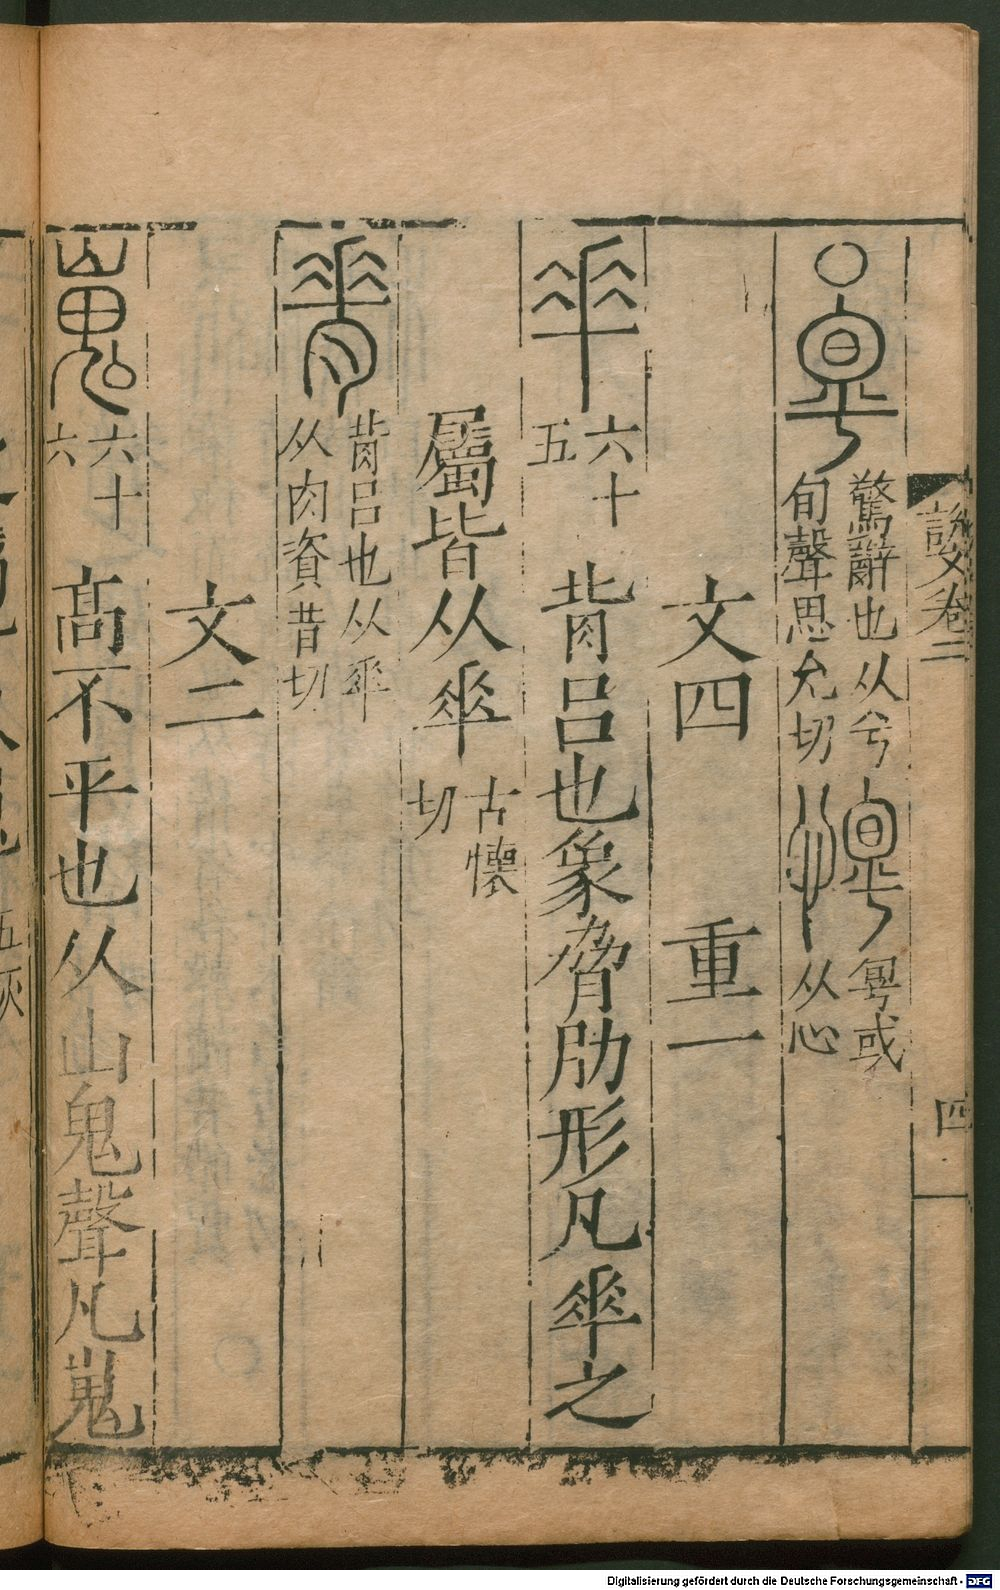 說文卷二
四
○𠷎驚辭也从兮旬聲思允切𠷎粤或从心
文四 重一
𠦬六十五 背呂也象脅肋形凡𠦬之
屬皆从𠦬古懷切
脊背呂也从𠦬从肉資昔切
文二
嵬六十六 高不平也从山鬼聲凡嵬
五灰
Digitalisierung gefördert durch die Deutsche Forschungsgemeinschaft - DFG